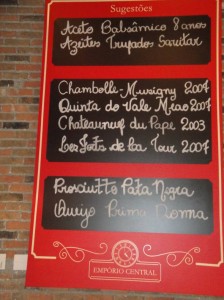 Sugestões
Aceto Balsâmico 8 anos
Azeites Trufados Savitar
Chambolle-Musigny 2007
Quinta do Vale Meao 2007
Chateauneuf du Pape 2003
Les Forts de La Tour 2007
Prosciutto Pata Negra
Queijo Prima Donna
EMPÓRIO CENTRAL